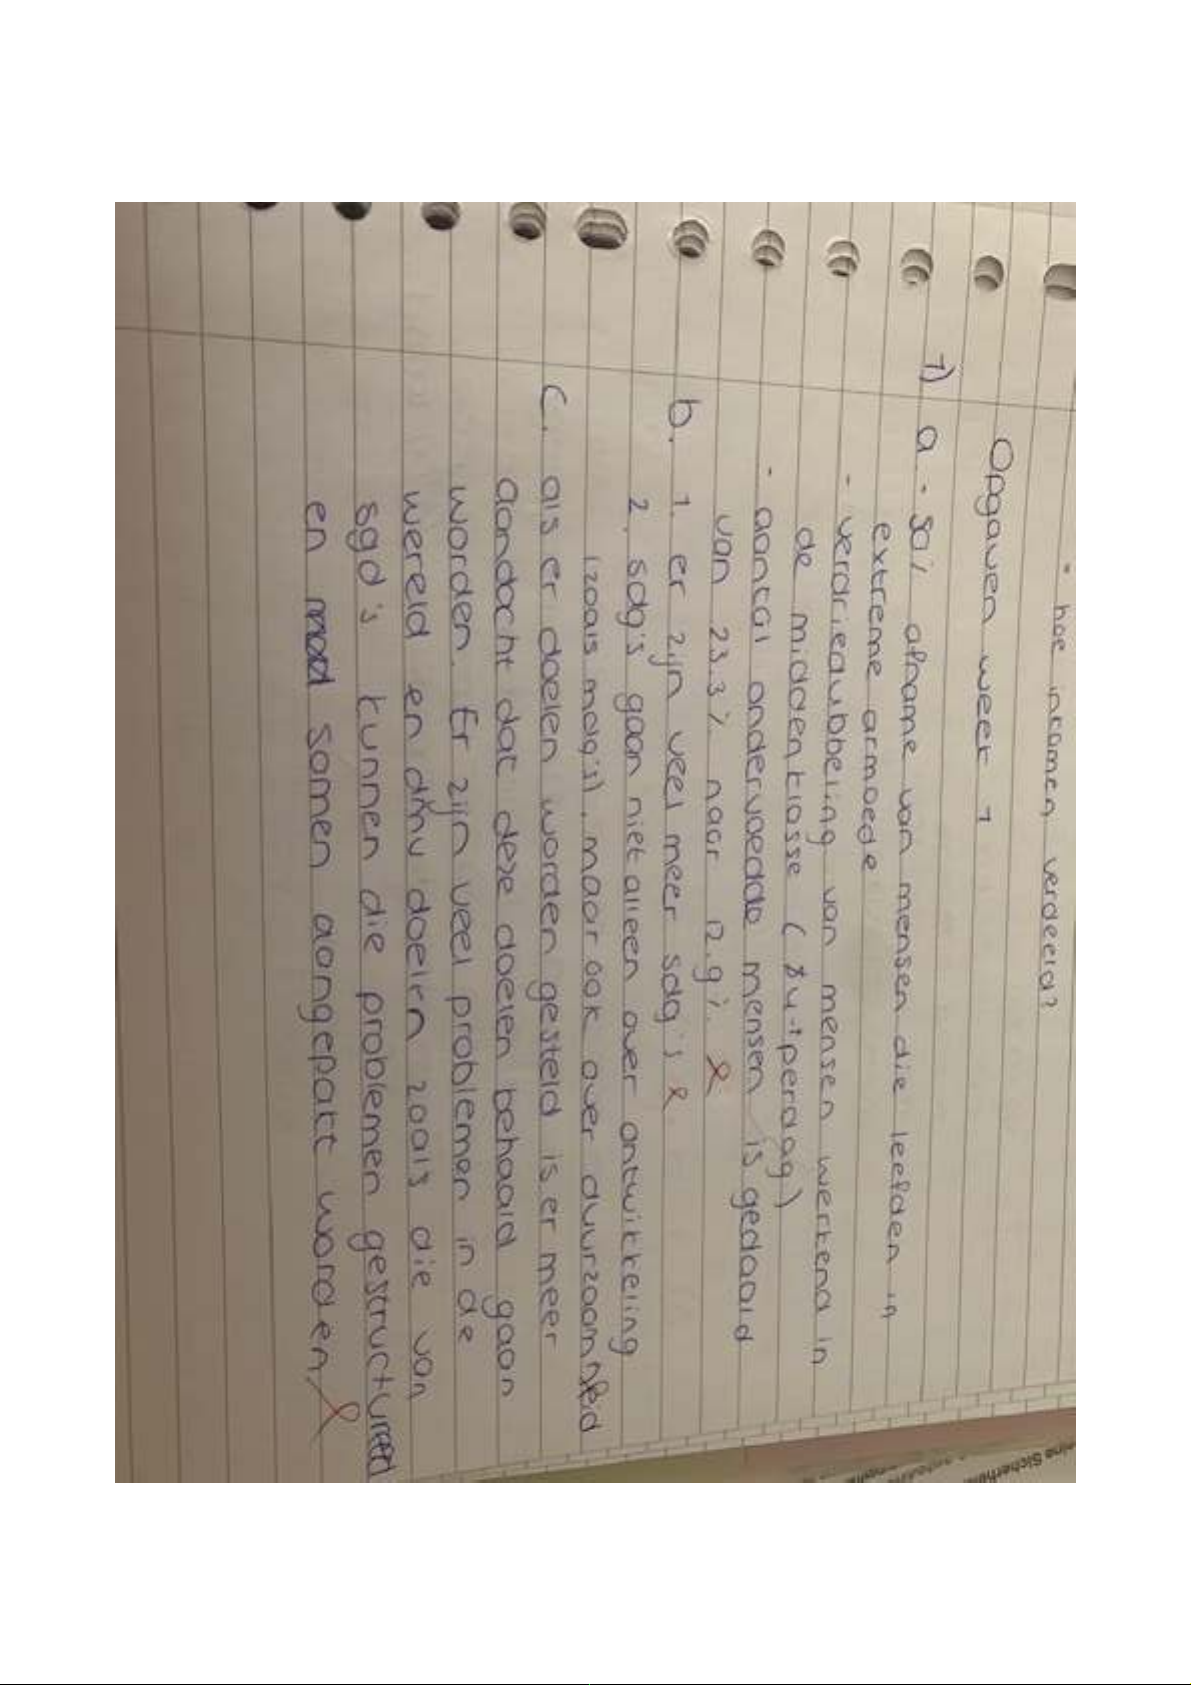 • hoe inkomen verdeeld?
Opgaven week 1
1) a. - 50% afname van mensen die leefden in
extreme armoede
- verdriedubbeling van mensen werkend in
de middenklasse ( $4+ per dag)
- aantal ondervoedde mensen is gedaald
van 23.3% naar 12.9%.
b. 1. er zijn veel meer sdg's
2. sdg's gaan niet alleen over ontwikkeling
(zoals mdg's), maar ook over duurzaamheid
c. als er doelen worden gesteld is er meer
aandacht dat deze doelen behaald gaan
worden. Er zijn veel problemen in de
wereld en dmv doelen zoals die van
sgd's kunnen die problemen gestructureerd
en samen aangepakt worden